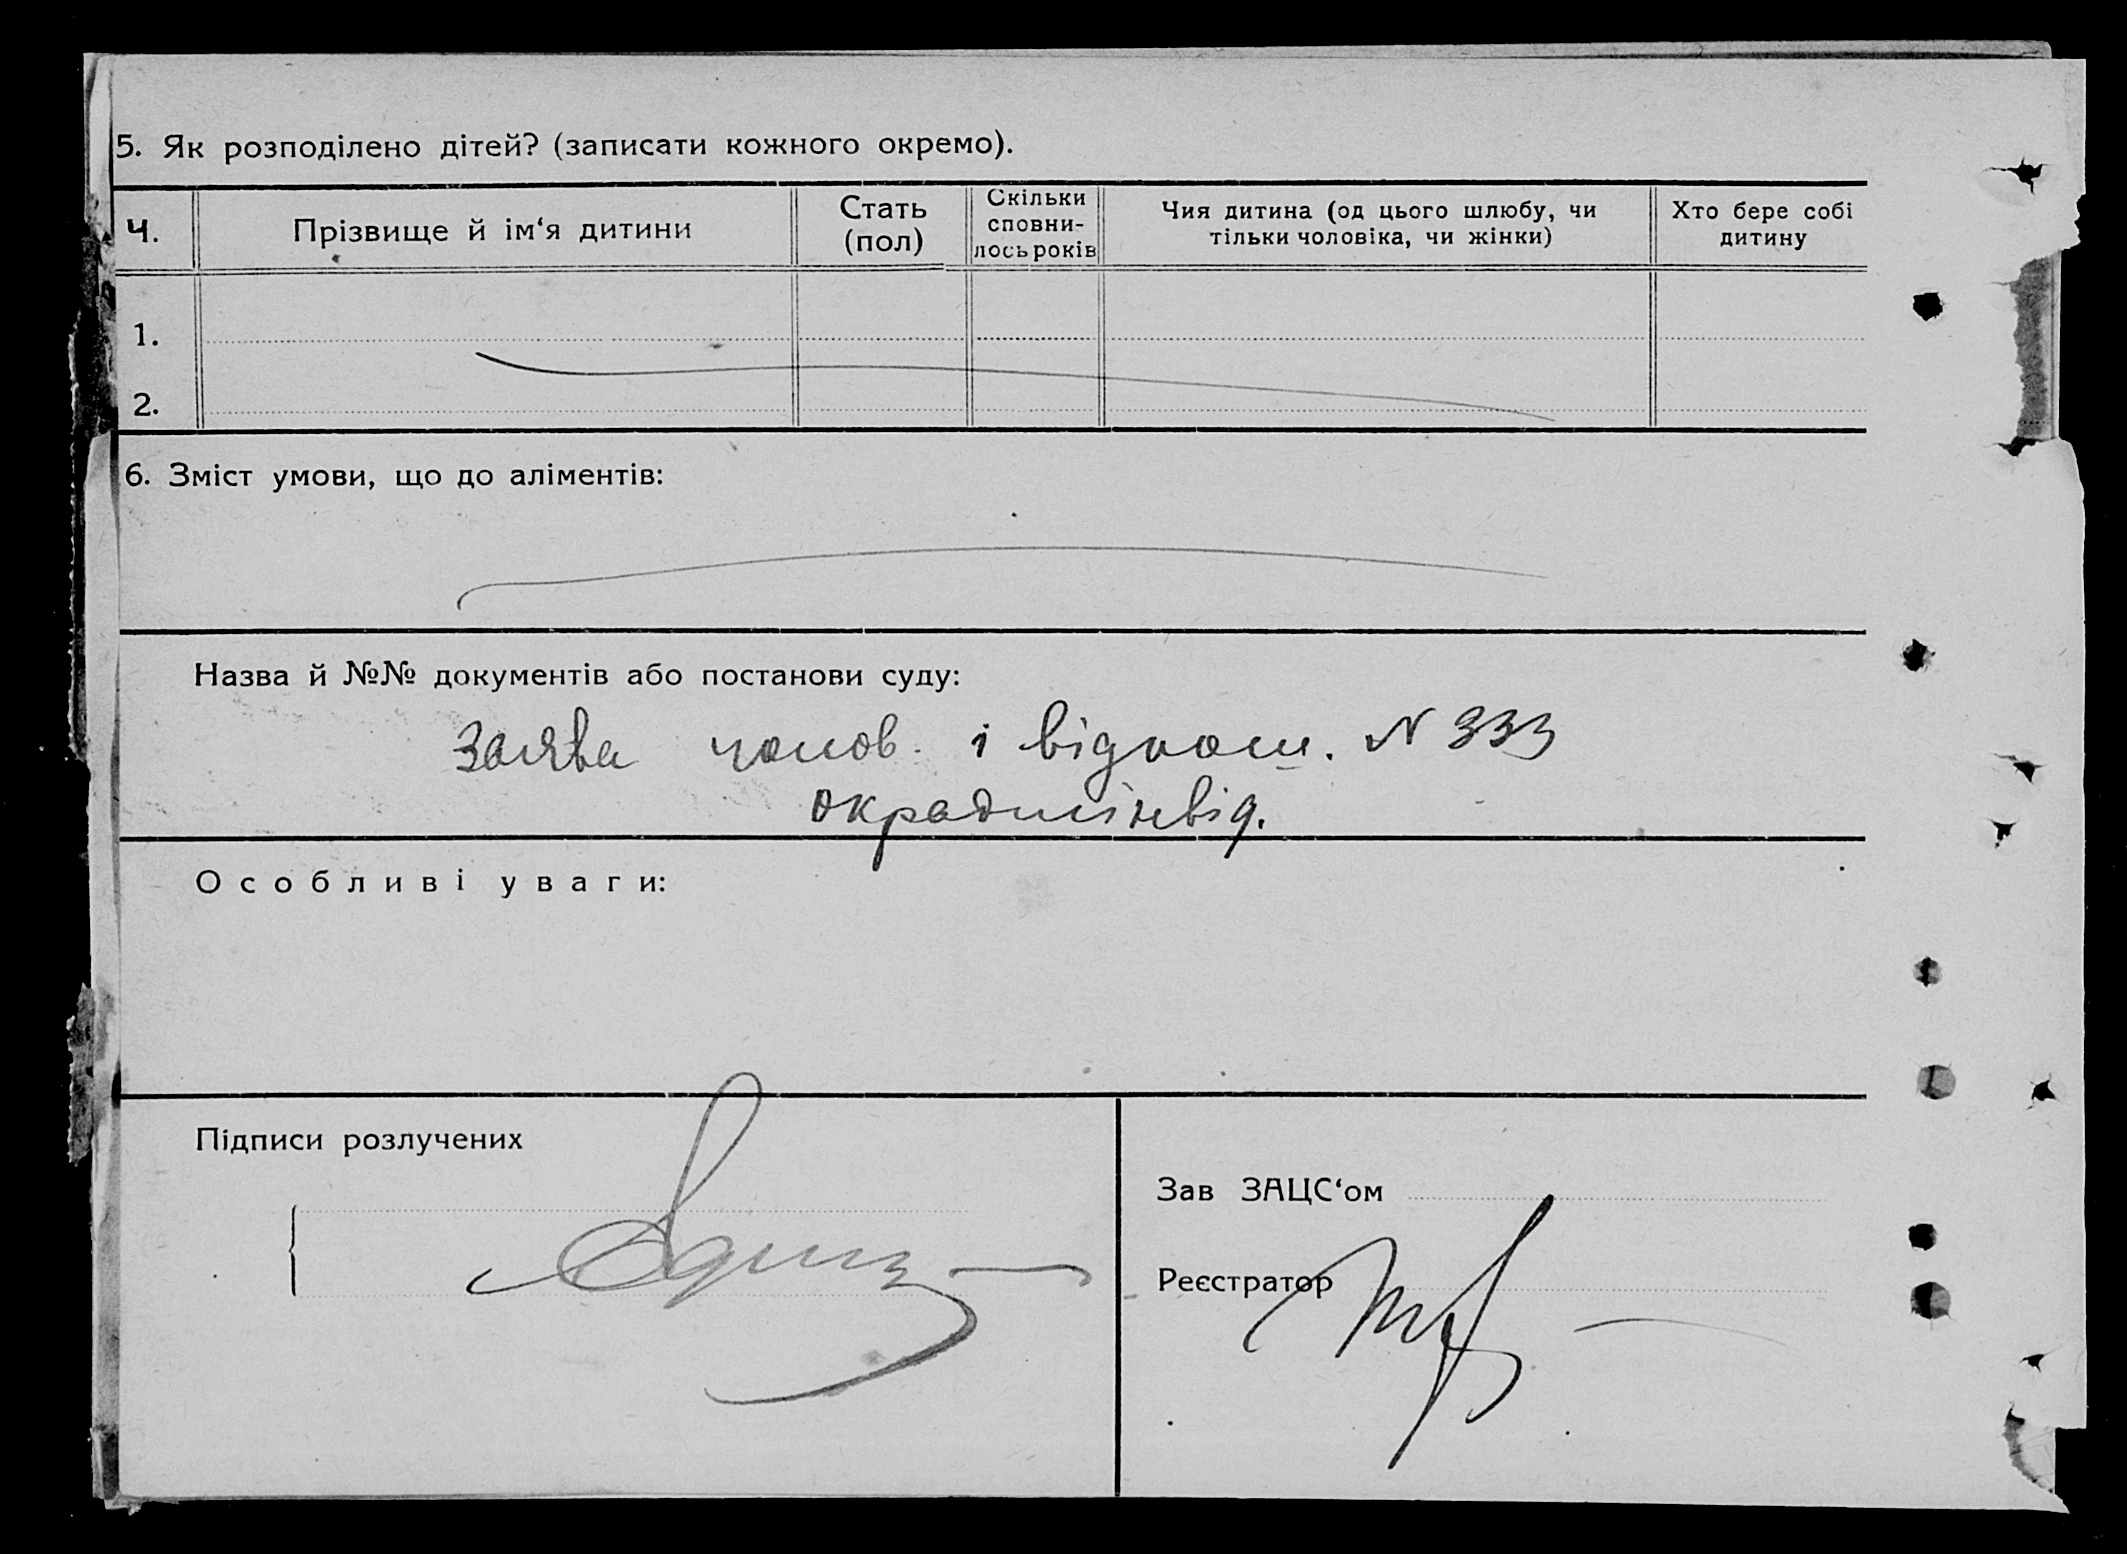 5. Як розподілено дітей? (записати кожного окремо).
Ч.
Прізвище й ім‘я дитини
Стать
(пол)
Скільки
сповни-
лось років
Чия дитина (од цього шлюбу, чи
тільки чоловіка, чи жінки)
Хто бере собі
дитину
1.
2.
6. Зміст умови, що до аліментів:
Назва й №№ документів або постанови суду:
Заява чолов. і віднош. N 333
окрадмінвід.
Особливі уваги:
Підписи розлучених
Зав ЗАЦС‘ом
Реєстратор